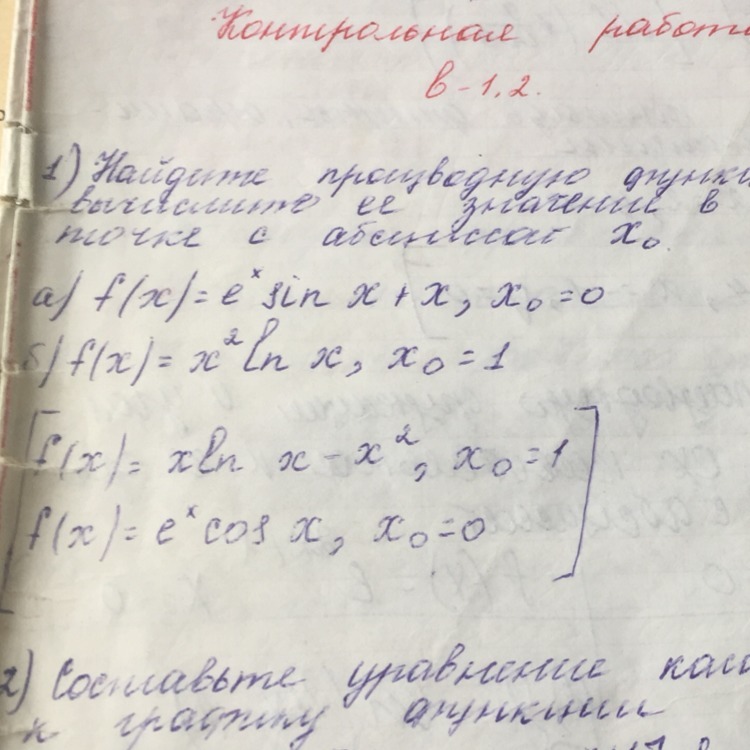 Контрольная работ
в-1,2.
1) Найдите производную функци
вычислите ее значение в
точке с абсциссой x₀
а) f(x)=eˣ sin x+x, x₀=0
б) f(x)= x² ln x, x₀=1
[f(x)= x ln x - x², x₀=1
f(x)= eˣ cos x, x₀=0]
2) Составьте уравнение кас
к графику функции